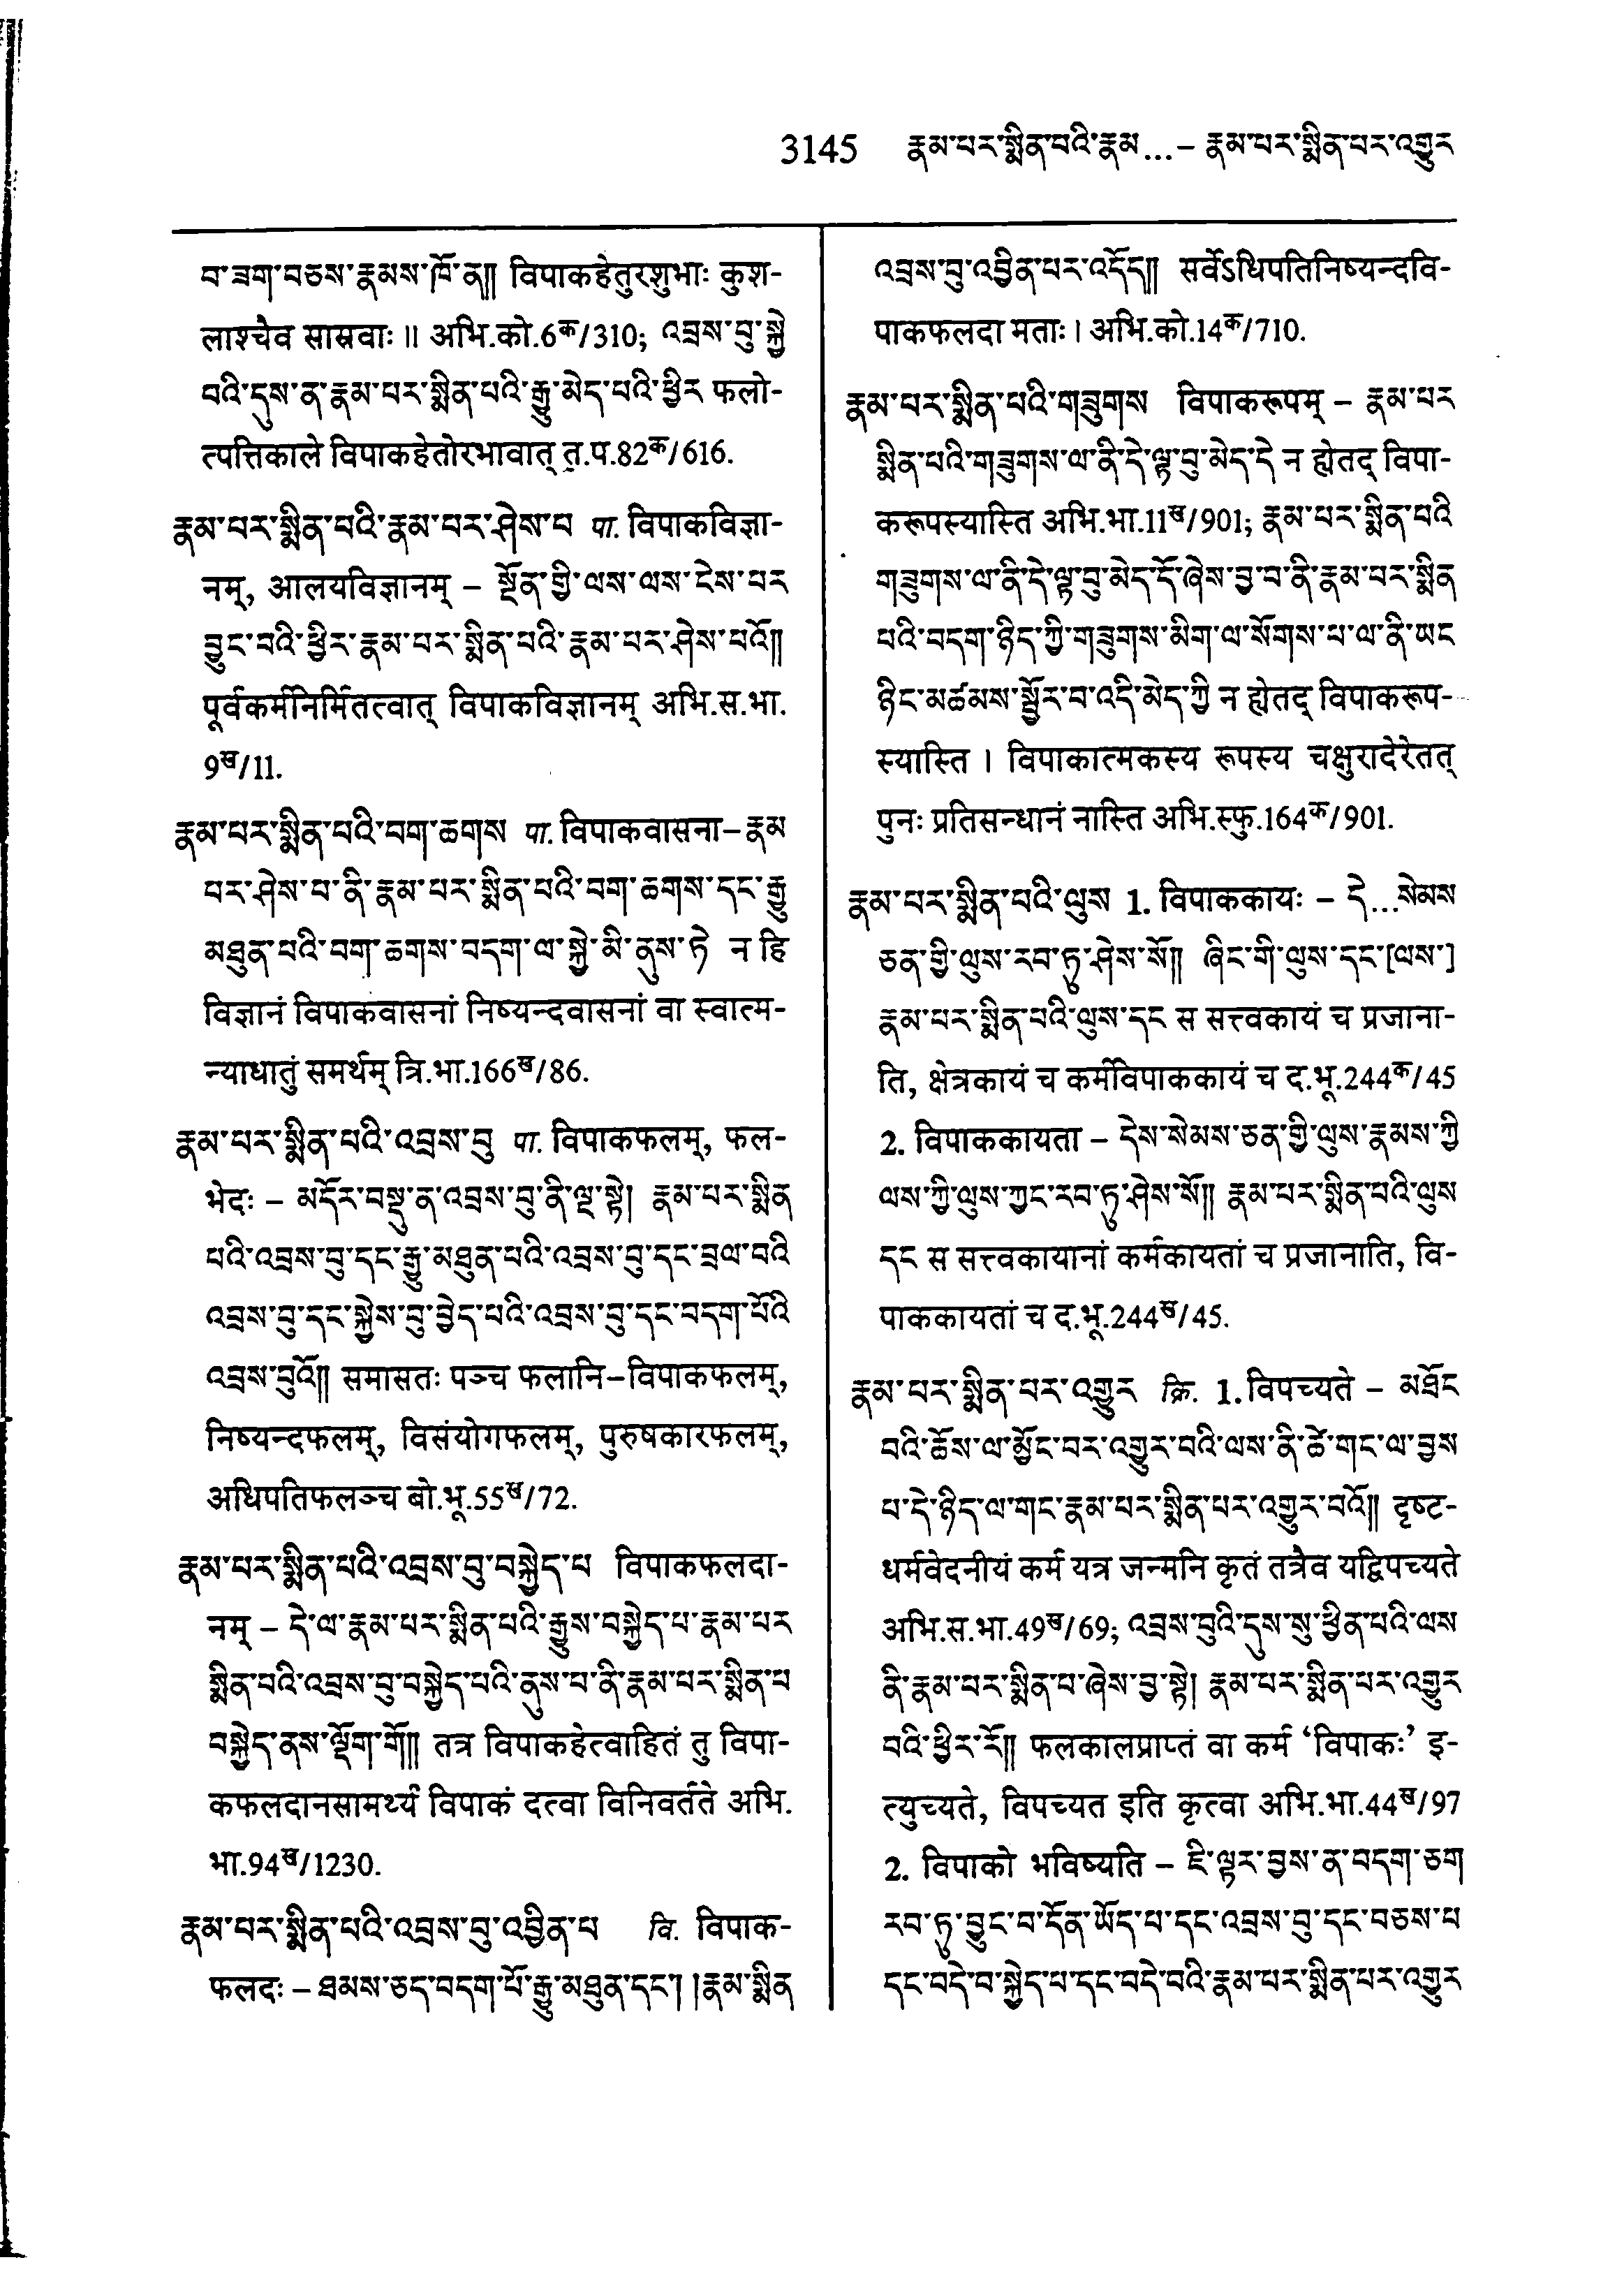 3145 རྣམ་པར་སྨིན་པའི་རྣམ...– རྣམ་པར་སྨིན་པར་འགྱུར
བ་ཟག་བཅས་རྣམས་ཁོ་ན༎ विपाकहेतुरशुभाः कुश-
लाश्चैव सास्रवाः ॥ अभि.को.6क/310; འབྲས་བུ་སྐྱེ
བའི་དུས་ན་རྣམ་པར་སྨིན་པའི་རྒྱུ་མེད་པའི་ཕྱིར फलो-
त्पत्तिकाले विपाकहेतोरभावात् त.प.82क/616.
རྣམ་པར་སྨིན་པའི་རྣམ་པར་ཤེས་པ पा. विपाकविज्ञा-
नम्, आलयविज्ञानम् – སྔོན་གྱི་ལས་ལས་ངེས་པར
བྱུང་བའི་ཕྱིར་རྣམ་པར་སྨིན་པའི་རྣམ་པར་ཤེས་པའོ༎
पूर्वकर्मनिर्मितत्वात् विपाकविज्ञानम् अभि.स.भा.
9ख/11.
རྣམ་པར་སྨིན་པའི་བག་ཆགས पा. विपाकवासना– རྣམ
པར་ཤེས་པ་ནི་རྣམ་པར་སྨིན་པའི་བག་ཆགས་དང་རྒྱུ
མཐུན་པའི་བག་ཆགས་བདག་ལ་སྐྱེ་མི་ནུས་ཏེ न हि
विज्ञानं विपाकवासनां निष्यन्दवासनां वा स्वात्म-
न्याधातुं समर्थम् त्रि.भा.166ख/86.
རྣམ་པར་སྨིན་པའི་འབྲས་བུ पा. विपाकफलम्, फल-
भेदः – མདོར་བསྡུ་ན་འབྲས་བུ་ནི་ལྔ་སྟེ། རྣམ་པར་སྨིན
པའི་འབྲས་བུ་དང་རྒྱུ་མཐུན་པའི་འབྲས་བུ་དང་བྲལ་བའི
འབྲས་བུ་དང་སྐྱེས་བུ་བྱེད་པའི་འབྲས་བུ་དང་བདག་པོའི
འབྲས་བུའོ༎ समासतः पञ्च फलानि–विपाकफलम्,
निष्यन्दफलम्, विसंयोगफलम्, पुरुषकारफलम्,
अधिपतिफलञ्च बो.भू.55ख/72.
རྣམ་པར་སྨིན་པའི་འབྲས་བུ་བསྐྱེད་པ विपाकफलदा-
नम् – དེ་ལ་རྣམ་པར་སྨིན་པའི་རྒྱུས་བསྐྱེད་པ་རྣམ་པར
སྨིན་པའི་འབྲས་བུ་བསྐྱེད་པའི་ནུས་པ་ནི་རྣམ་པར་སྨིན་པ
བསྐྱེད་ནས་ལྡོག་གོ༎ तत्र विपाकहेत्वाहितं तु विपा-
कफलदानसामर्थ्यं विपाकं दत्वा विनिवर्तते अभि.
भा.94ख/1230.
རྣམ་པར་སྨིན་པའི་འབྲས་བུ་འབྱིན་པ वि. विपाक-
फलदः – ཐམས་ཅད་བདག་པོ་རྒྱུ་མཐུན་དང༌། །རྣམ་སྨིན
འབྲས་བུ་འབྱིན་པར་འདོད༎ सर्वेऽधिपतिनिष्यन्दवि-
पाकफलदा मताः । अभि.को.14क/710.
རྣམ་པར་སྨིན་པའི་གཟུགས विपाकरूपम् – རྣམ་པར
སྨིན་པའི་གཟུགས་ལ་ནི་དེ་ལྟ་བུ་མེད་དེ न ह्येतद् विपा-
करूपस्यास्ति अभि.भा.11ख/901; རྣམ་པར་སྨིན་པའི
གཟུགས་ལ་ནི་དེ་ལྟ་བུ་མེད་དོ་ཞེས་བྱ་བ་ནི་རྣམ་པར་སྨིན
པའི་བདག་ཉིད་ཀྱི་གཟུགས་མིག་ལ་སོགས་པ་ལ་ནི་ཡང
ཉིང་མཚམས་སྦྱོར་བ་འདི་མེད་ཀྱི न ह्येतद् विपाकरूप-
स्यास्ति । विपाकात्मकस्य रूपस्य चक्षुरादेरेतत्
पुनः प्रतिसन्धानं नास्ति अभि.स्फु.164क/901.
རྣམ་པར་སྨིན་པའི་ལུས 1. विपाककायः – དེ...སེམས
ཅན་གྱི་ལུས་རབ་ཏུ་ཤེས་སོ༎ ཞིང་གི་ལུས་དང་[ལས་]
རྣམ་པར་སྨིན་པའི་ལུས་དང स सत्त्वकायं च प्रजाना-
ति, क्षेत्रकायं च कर्मविपाककायं च द.भू.244क/45
2. विपाककायता – དེས་སེམས་ཅན་གྱི་ལུས་རྣམས་ཀྱི
ལས་ཀྱི་ལུས་ཀྱང་རབ་ཏུ་ཤེས་སོ༎ རྣམ་པར་སྨིན་པའི་ལུས
དང स सत्त्वकायानां कर्मकायतां च प्रजानाति, वि-
पाककायतां च द.भू.244ख/45.
རྣམ་པར་སྨིན་པར་འགྱུར क्रि. 1. विपच्यते – མཐོང
བའི་ཆོས་ལ་མྱོང་བར་འགྱུར་བའི་ལས་ནི་ཚེ་གང་ལ་བྱས
པ་དེ་ཉིད་ལ་གང་རྣམ་པར་སྨིན་པར་འགྱུར་བའོ༎ दृष्ट-
धर्मवेदनीयं कर्म यत्र जन्मनि कृतं तत्रैव यद्विपच्यते
अभि.स.भा.49ख/69; འབྲས་བུའི་དུས་སུ་ཕྱིན་པའི་ལས
ནི་རྣམ་པར་སྨིན་པ་ཞེས་བྱ་སྟེ། རྣམ་པར་སྨིན་པར་འགྱུར
བའི་ཕྱིར་རོ༎ फलकालप्राप्तं वा कर्म ‘विपाकः’ इ-
त्युच्यते, विपच्यत इति कृत्वा अभि.भा.44ख/97
2. विपाको भविष्यति – ཇི་ལྟར་བྱས་ན་བདག་ཅག
རབ་ཏུ་བྱུང་བ་དོན་ཡོད་པ་དང་འབྲས་བུ་དང་བཅས་པ
དང་བདེ་བ་སྐྱེད་པ་དང་བདེ་བའི་རྣམ་པར་སྨིན་པར་འགྱུར